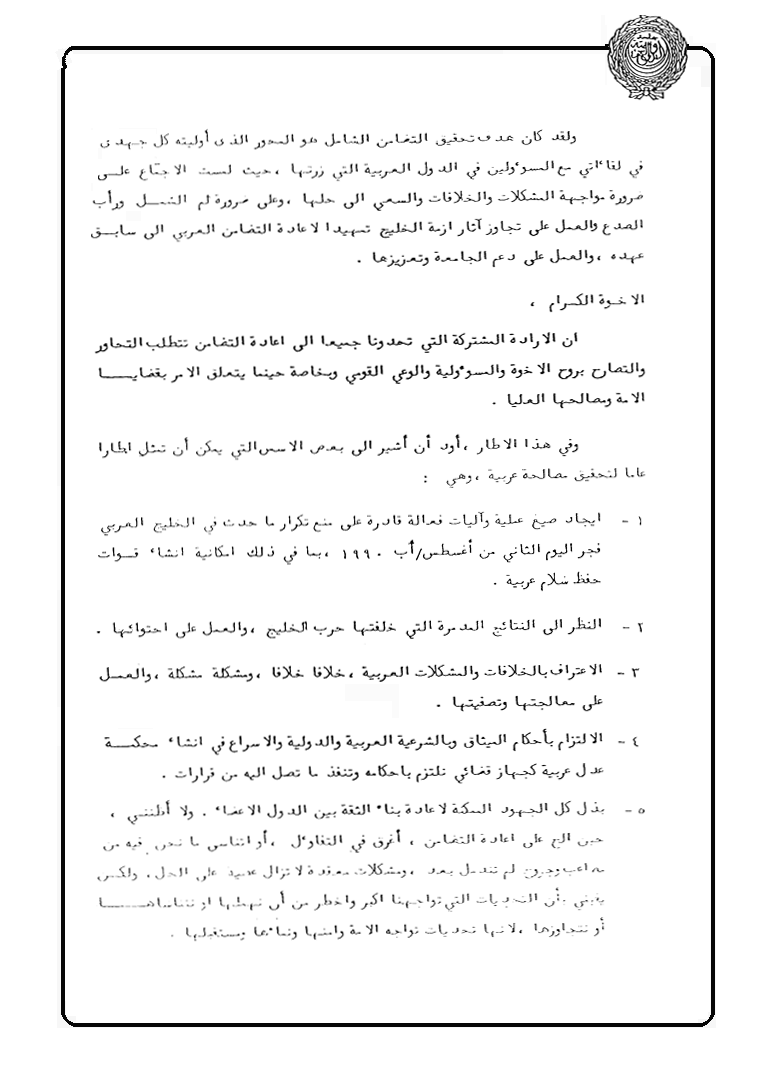 ولقد كان هدف تحقيق التضامن الشامل هو المحور الذى أوليته كل جهدى
في لقاءاتي مع المسوءولين في الدول العربية التي زرتها ، حيث لمست الاجتماع علـــى
ضرورة مواجهة المشكلات والخلافات والسعي الى حلها ، وعلى ضرورة لم الشمـل ورأب
الصدع والعمل على تجاوز آثار ازمة الخليج تمهيدا لاعادة التضامن العربي الى سابـق
عهده ، والعمل على دعم الجامعة وتعزيزها .
الاخـوة الكـرام ،
ان الارادة المشتركة التي تحدونا جميعا الى اعادة التضامن تتطلب التحاور
والتصارح بروح الاخوة والمسوءولية والوعي القومي وبخاصة حينما يتعلق الامر بقضايـــا
الامة ومصالحها العليا .
وفي هذا الاطار ، أود أن أشير الى بعض الاسس التي يمكن أن تمثل اطارا
عاما لتحقيق مصالحة عربية ، وهي :
١ - ايجاد صيغ عملية وآليات فعالة قادرة على منع تكرار ما حدث في الخليج العربي
فجر اليوم الثاني من أغسطس/آب ١٩٩٠ ، بما في ذلك امكانية انشاء قـوات
حفظ سلام عربية .
٢ - النظر الى النتائج المدمرة التي خلفتها حرب الخليج ، والعمل على احتوائها .
٣ - الاعتراف بالخلافات والمشكلات العربية ، خلافا خلافا ، ومشكلة مشكلة ، والعمـل
على معالجتها وتصفيتها .
٤ - الالتزام بأحكام الميثاق وبالشرعية العربية والدولية والاسراع في انشاء محكمــة
عدل عربية كجهاز قضائي نلتزم باحكامه وتنفذ ما تصل اليه من قرارات .
٥ - بذل كل الجهود الممكنة لاعادة بناء الثقة بين الدول الاعضاء . ولا أظننـي ،
حين الح على اعادة التضامن ، أغرق في التفاوءل ، أو اتناسى ما نحن فيه من
وجروح لم تندمل بعد ، ومشكلات معقدة لا تزال عصية على الحل . ولكـن
يقيني بأن التحديات التي تواجهنا اكبر واخطر من أن نهملها او نتناساهـــا
أو نتجاوزها ، لانها تحديات تواجه الامة وامنها ونماءها ومستقبلها .